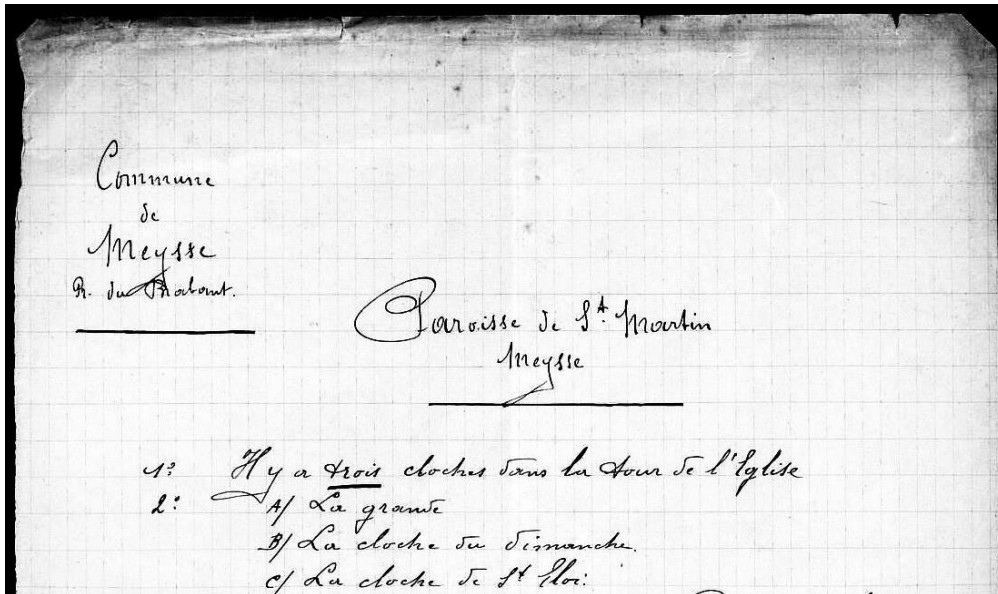 Commune
de
Meysse
P. du Brabant.
Paroisse de St. Martin
Meysse
1° Il y a trois cloches dans la tour de l'Eglise
2° A/ La grande
B/ La cloche du dimanche.
C/ La cloche de St Eloi.